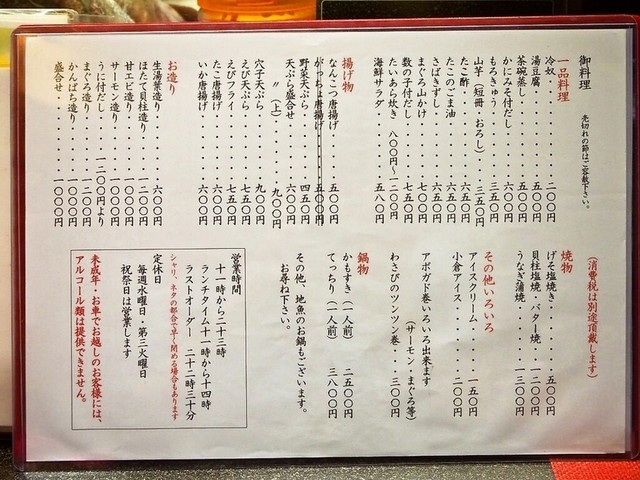 御料理
売切れの節はご容赦下さい。
一品料理
冷奴・・・・・・・・二〇〇円
湯豆腐・・・・・・・五〇〇円
茶碗蒸し・・・・・・五〇〇円
かにみそ付だし・・・六〇〇円
もろきゅう・・・・・三五〇円
山芋(短冊・おろし)・三五〇円
たこ酢・・・・・・・六五〇円
たこのごま油・・・・六五〇円
さばきずし・・・・・六五〇円
まぐろ山かけ・・・・七〇〇円
数の子付だし・・・・六五〇円
たいあら炊き 八〇〇円~一二〇〇円
海鮮サラダ・・・・・五八〇円
揚げ物
なんこつ唐揚げ・・・五〇〇円
がっちょ唐揚げ・・・五〇〇円
野菜天ぷら・・・・・四五〇円
天ぷら盛合せ・・・・六〇〇円
〃(上)・・・・・九〇〇円
穴子天ぷら・・・・・九〇〇円
えび天ぷら・・・・・七五〇円
えびフライ・・・・・七五〇円
たこ唐揚げ・・・・・六〇〇円
いか唐揚げ・・・・・六〇〇円
お造り
生湯葉造り・・・・・六〇〇円
ほたて貝柱造り・・・一二〇〇円
甘エビ造り・・・・・一〇〇〇円
サーモン造り・・・・一〇〇〇円
うに付だし・・・一二〇〇円より
まぐろ造り・・・・・一〇〇〇円
かんぱち造り・・・・一〇〇〇円
盛合せ・・・・・・・一〇〇〇円
(消費税は別途頂戴します)
焼物
げそ塩焼き・・・・・五〇〇円
貝柱塩焼・バター焼・一二〇〇円
うなぎ蒲焼・・・・・一三〇〇円
その他いろいろ
アイスクリーム・・・一五〇円
小倉アイス・・・・・二〇〇円
アボガド巻いろいろ出来ます
(サーモン・まぐろ等)
わさびのツンツン巻・・・三〇〇円
鍋物
かもすき(一人前) 二五〇〇円
てっちり(一人前) 三八〇〇円
その他、地魚のお鍋もございます。
お尋ね下さい。
営業時間
十一時から二十三時
ランチタイム十一時から十四時
ラストオーダー 二十二時三十分
シャリ、ネタの都合で早く閉める場合もあります
定休日
毎週水曜日・第三火曜日
祝祭日は営業します
未成年・お車でお越しのお客様には、
アルコール類は提供できません。